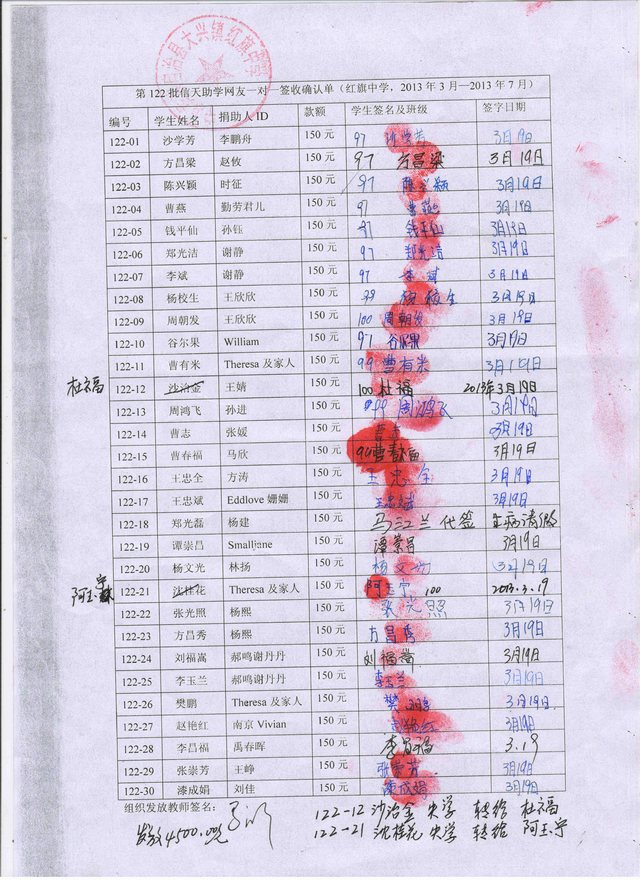 自治县大兴镇红旗中学
第 122 批信天助学网友一对一签收确认单（红旗中学，2013 年 3 月—2013 年 7 月）
编号 学生姓名 捐助人 ID 款额 学生签名及班级 签字日期
122-01 沙学芳 李鹏舟 150 元 97 沙学芳 3月19日
122-02 方昌梁 赵攸 150 元 97 方昌梁 3月19日
122-03 陈兴颖 时征 150 元 97 陈兴颖 3月19日
122-04 曹燕 勤劳君儿 150 元 97 曹燕 3月19日
122-05 钱平仙 孙钰 150 元 97 钱平仙 3月19日
122-06 郑光洁 谢静 150 元 97 郑光洁 3月19日
122-07 李斌 谢静 150 元 97 李斌 3月19日
122-08 杨校生 王欣欣 150 元 99 杨校生 3月19日
122-09 周朝发 王欣欣 150 元 100 周朝发 3月19日
122-10 谷尔果 William 150 元 97 谷尔果 3月19日
122-11 曹有米 Theresa 及家人 150 元 99 曹有米 3月19日
杜福 122-12 沙治金 王婧 150 元 100 杜福 2013年3月19日
122-13 周鸿飞 孙进 150 元 99 周鸿飞 3月19日
122-14 曹志 张媛 150 元 曹志 3月19日
122-15 曹春福 马欣 150 元 99 曹春福 3月19日
122-16 王忠全 方涛 150 元 王忠全 3月19日
122-17 王忠斌 Eddlove 姗姗 150 元 王忠斌 3月19日
122-18 郑光磊 杨建 150 元 马江兰代签 生病请假
122-19 谭崇昌 Smalljane 150 元 谭崇昌 3月19日
122-20 杨文光 林扬 150 元 杨文光 3月19日
阿玉宁 122-21 沈桂花 Theresa 及家人 150 元 阿玉宁 100 2013.3.19
122-22 张光照 杨熙 150 元 张光照 3月19日
122-23 方昌秀 杨熙 150 元 方昌秀 3月19日
122-24 刘福嵩 郝鸣谢丹丹 150 元 刘福嵩 3月19日
122-25 李玉兰 郝鸣谢丹丹 150 元 李玉兰 3月19日
122-26 樊鹏 Theresa 及家人 150 元 樊鹏 3月19日
122-27 赵艳红 南京 Vivian 150 元 赵艳红 3月19日
122-28 李昌福 禹春晖 150 元 李昌福 3.19
122-29 张崇芳 王峥 150 元 张崇芳 3月19日
122-30 漆成娟 刘佳 150 元 漆成娟 3月19日
组织发放教师签名：
122-12 沙治金 失学 转给 杜福
发放4500.00元
122-21 沈桂花 失学 转给 阿玉宁